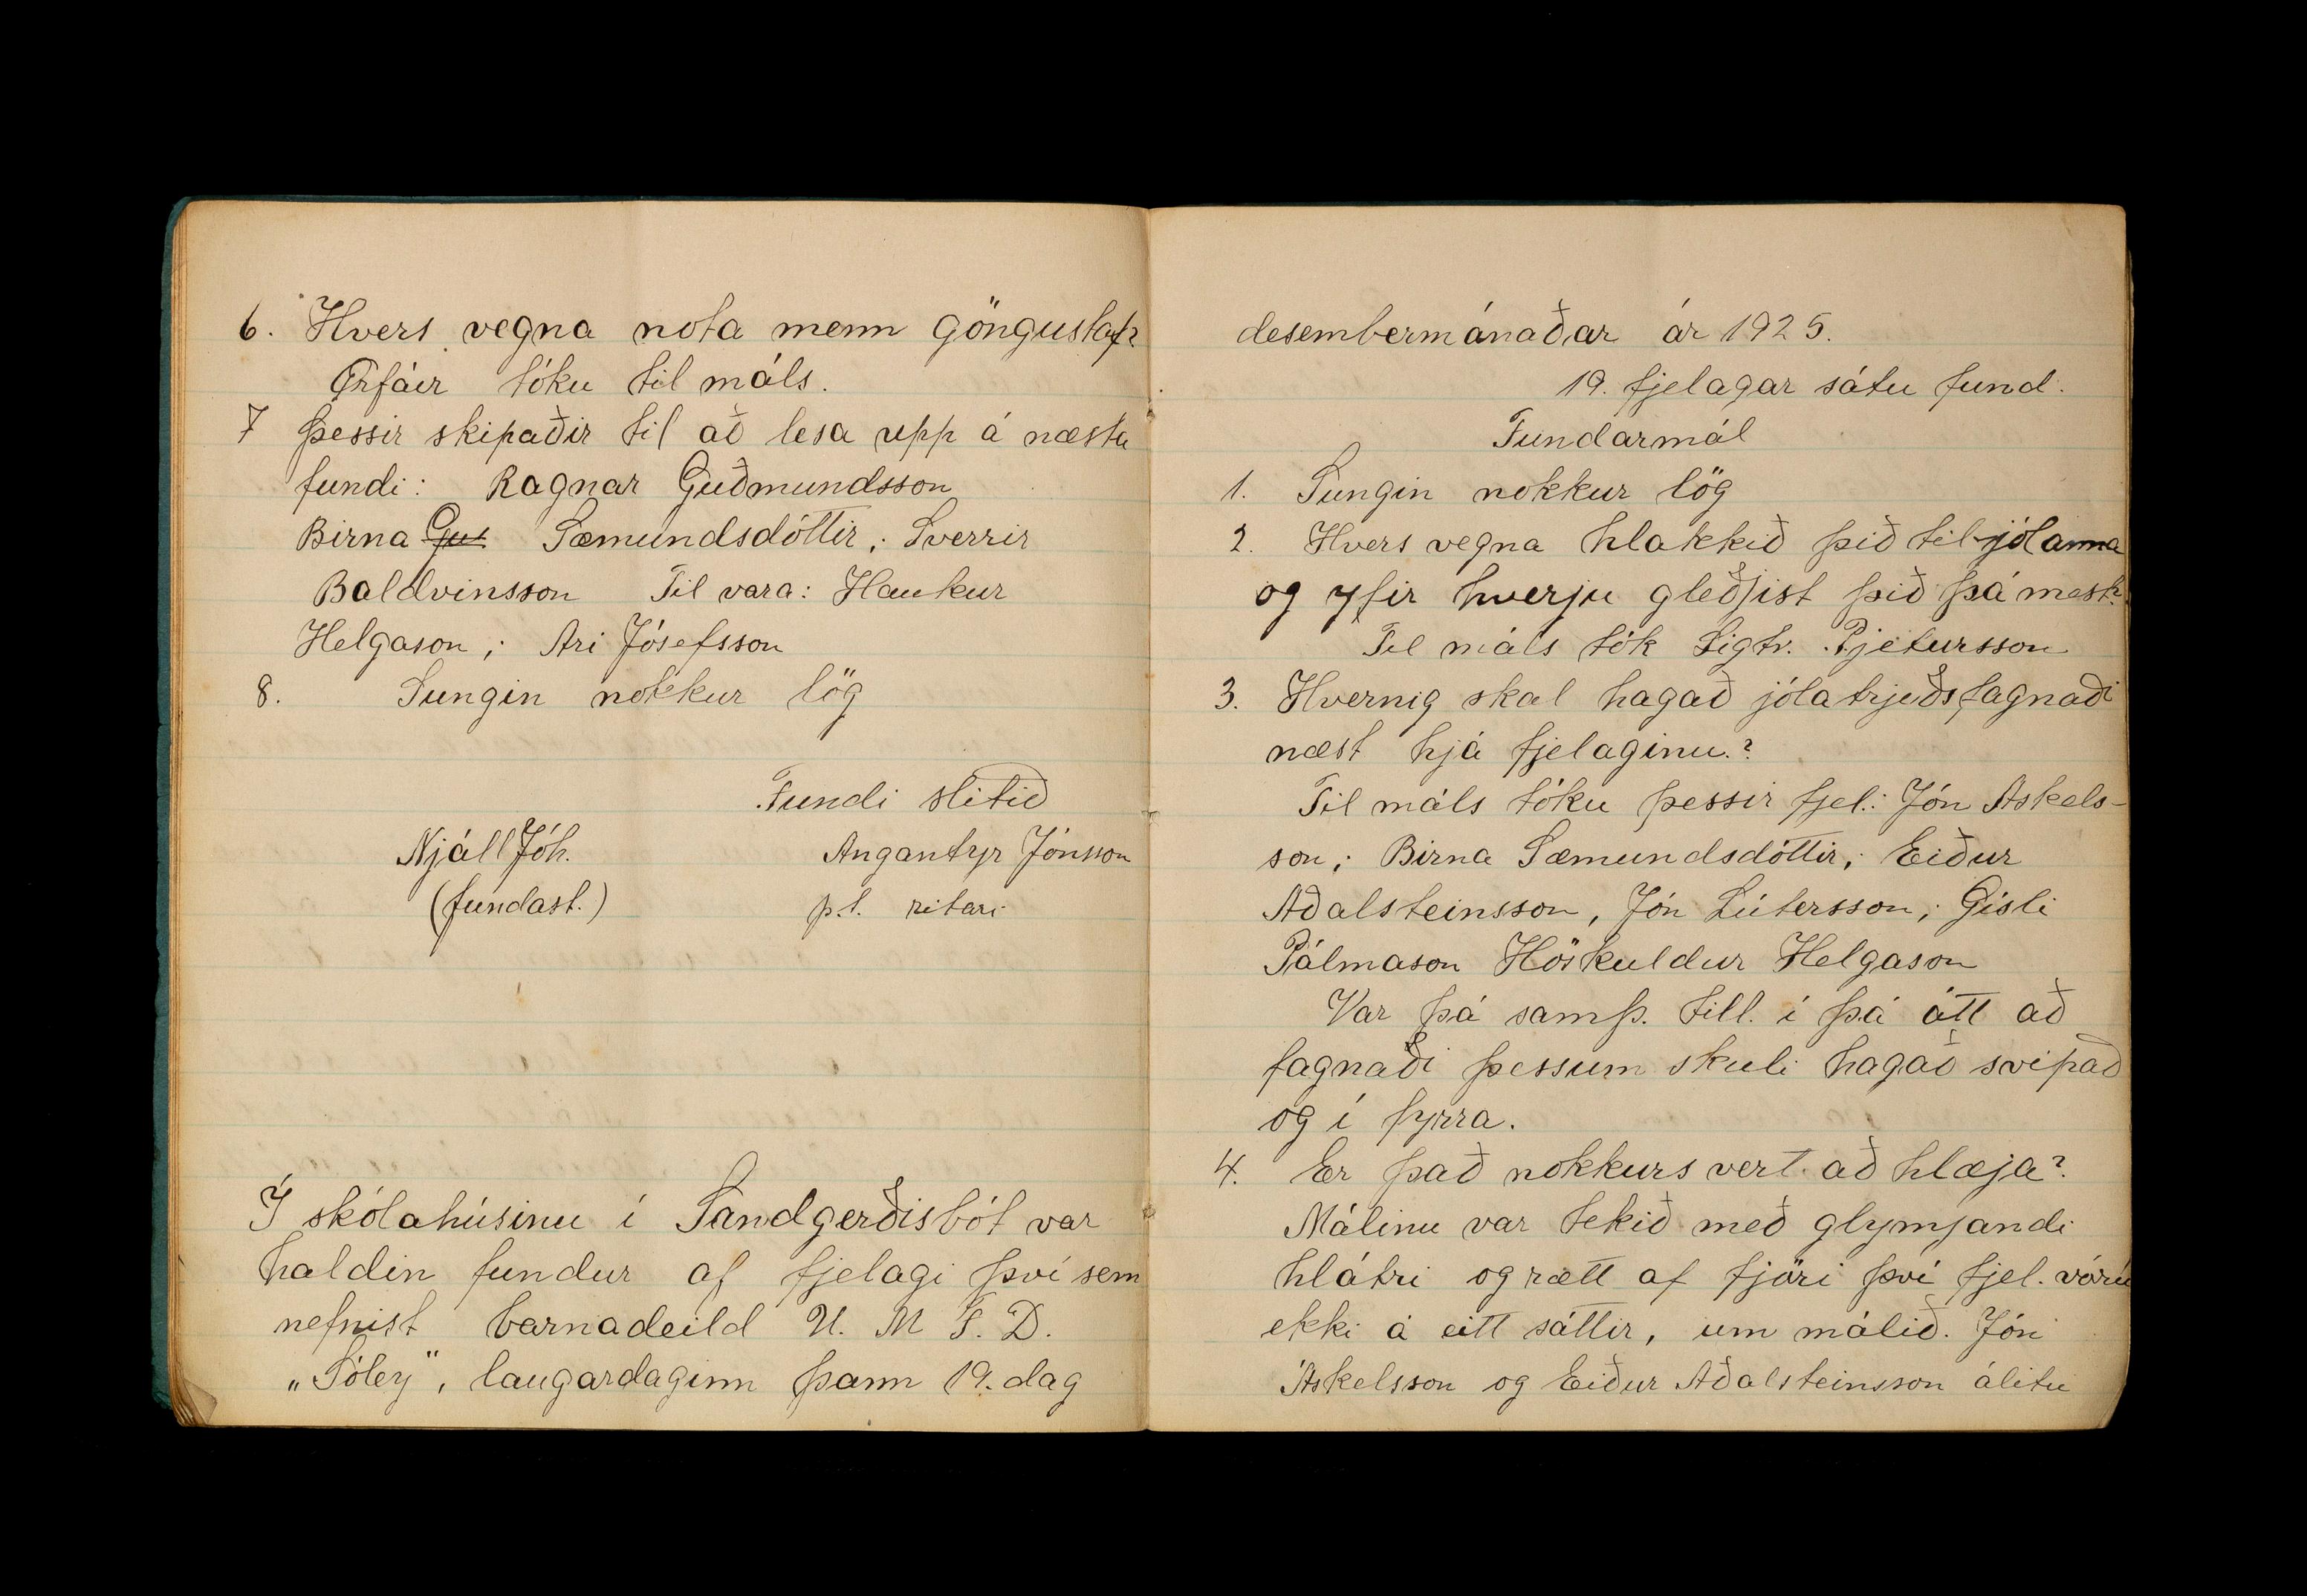 6. Hvers vegna nota menn göngustaf?
Örfáir tóku til máls.
7 Þessir skipaðir til að lesa upp á næsta
fundi: Ragnar Guðmundsson
Birna Gus Sæmundsdóttir; Sverrir
Baldvinsson Til vara: Haukur
Helgason; Ari Jósefsson
8. Sungin nokkur lög
Fundi slitið
Njáll Jóh. Angantyr Jónsson
(fundast.) p.t. ritari
Í skólahúsinu í Sandgerðisbót var
haldin fundur af fjelagi því sem
nefnist barnadeild U. M F. D.
„Sóley", laugardaginn þann 19. dag
desembermánaðar ár 1925.
19. fjelagar sátu fund.
Fundarmál
1. Sungin nokkur lög
2. Hvers vegna hlakkið þið til jólanna
og yfir hverju gleðjist þið þá mest?
Til máls tók Sigtr. Pjetursson
3. Hvernig skal hagað jólatrjeðsfagnaði
næst hjá fjelaginu.?
Til máls tóku þessir fjel.: Jón Askels-
son; Birna Sæmundsdóttir; Eiður
Aðalsteinsson, Jón Lútersson; Gísli
Pálmason Höskuldur Helgason
Var þá samþ. till. í þá átt að
fagnaði þessum skuli hagað svipað
og í fyrra.
4. Er það nokkurs vert að hlæja?
Málinu var tekið með glymjandi
hlátri og rætt af fjöri því fjel. vóru
ekki á eitt sáttir, um málið. Jón
Áskelsson og Eiður Aðalsteinsson álitu